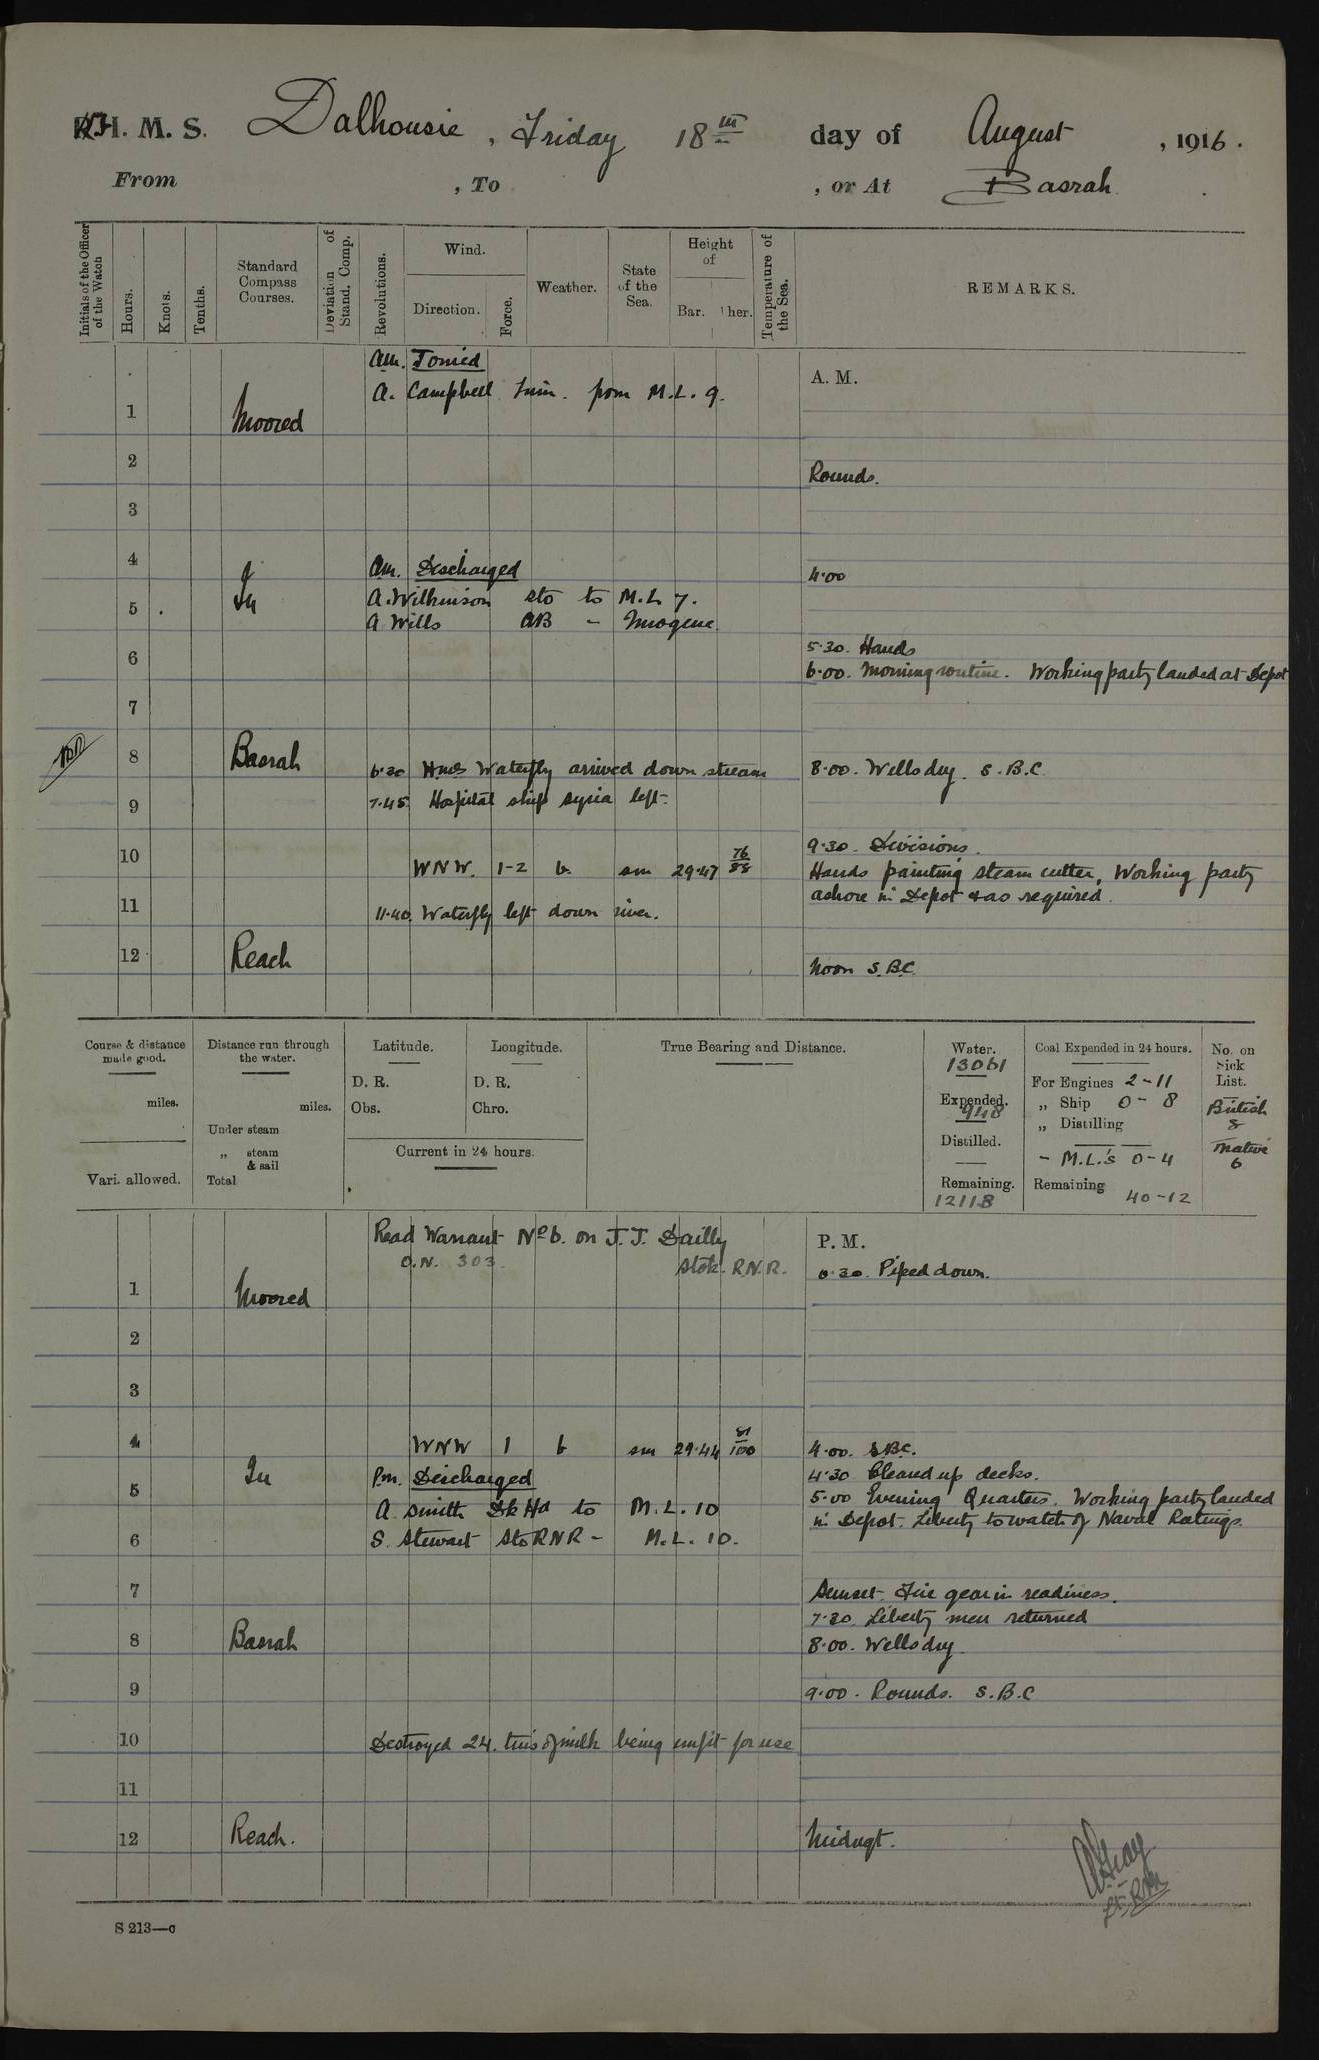 H. M. S. Dalhousie, Friday 18th day of August, 1916.
From , To , or At Basrah.
Initials of the Officer of the Watch
Hours.
Knots.
Tenths.
Standard Compass Courses.
Deviation of Stand. Comp.
Revolutions.
Wind.
Direction.
Force.
Weather.
State of the Sea.
Height of
Bar. her.
Temperature of the Sea.
REMARKS.
am. Joined
A. M.
A. Campbell from M.L. 9.
1 Moored
2
Rounds.
3
4
am. Discharged
4.00
A. Wilkinson Sto to M.L 7.
5 in
A Wills AB - Imogene
5.30. Hands
6
6.00. Morning routine. Working party landed at Depot
7
8 Basrah
6.30 HMS Waterfly arrived down stream
8.00. Wells dry. S.B.C.
9
7.45 Hospital ship Syria left.
9.30. Divisions.
10
WNW. 1-2 b. sm 29.47 76/88
Hands painting steam cutter, Working party
ashore in Depot & as required.
11
11.40. Waterfly left down river.
12 Reach
Noon S.B.C.
Course & distance made good.
miles.
Vari. allowed.
Distance run through the water.
miles.
Under steam
„ steam & sail
Total
Latitude.
D. R.
Obs.
Longitude.
D. R.
Chro.
Current in 24 hours.
True Bearing and Distance.
Water.
13061
Expended.
948
Distilled.
Remaining.
12113
Coal Expended in 24 hours.
For Engines 2-11
„ Ship 0-8
„ Distilling
- M.L.'s 0-4
Remaining 40-12
No. on Sick List.
British
8
Native
6
Read Warrant No 6. on J. J. Dailly
O.N. 303. Stok. R.N.R.
P. M.
0.30. Piped down.
1 Moored
2
3
4
WNW 1 b sm 29.44 81/100
4.00. S.B.C.
In
Pm. Discharged
4.30 Cleared up decks.
5
5.00 Evening Quarters. Working party landed
A Smith Dk Hd to M.L. 10
in Depot. Liberty to watch of Naval Ratings.
6
S. Stewart Sto RNR - M.L. 10.
7
Sunset. Fire gear in readiness.
7.30. Liberty men returned
8 Basrah
8.00. Wells dry.
9
9.00. Rounds. S.B.C
10
Destroyed 24. tins of milk being unfit for use
11
12 Reach.
Midngt.
S 213—c